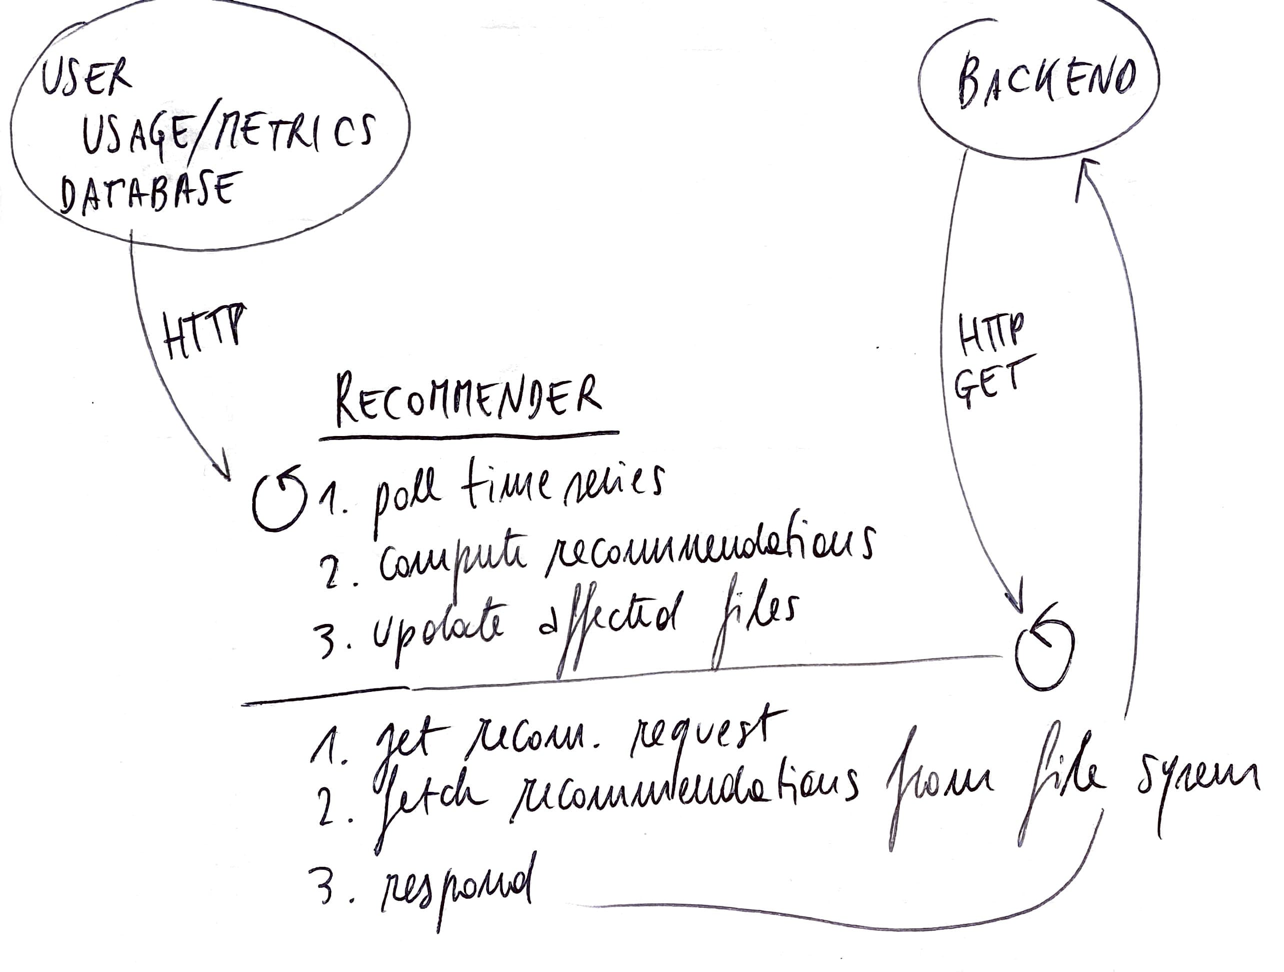 USER
USAGE/METRICS
DATABASE
BACKEND
HTTP
HTTP
GET
RECOMMENDER
1. poll time series
2. compute recommendations
3. update affected files
1. get recom. request
2. fetch recommendations from file system
3. respond